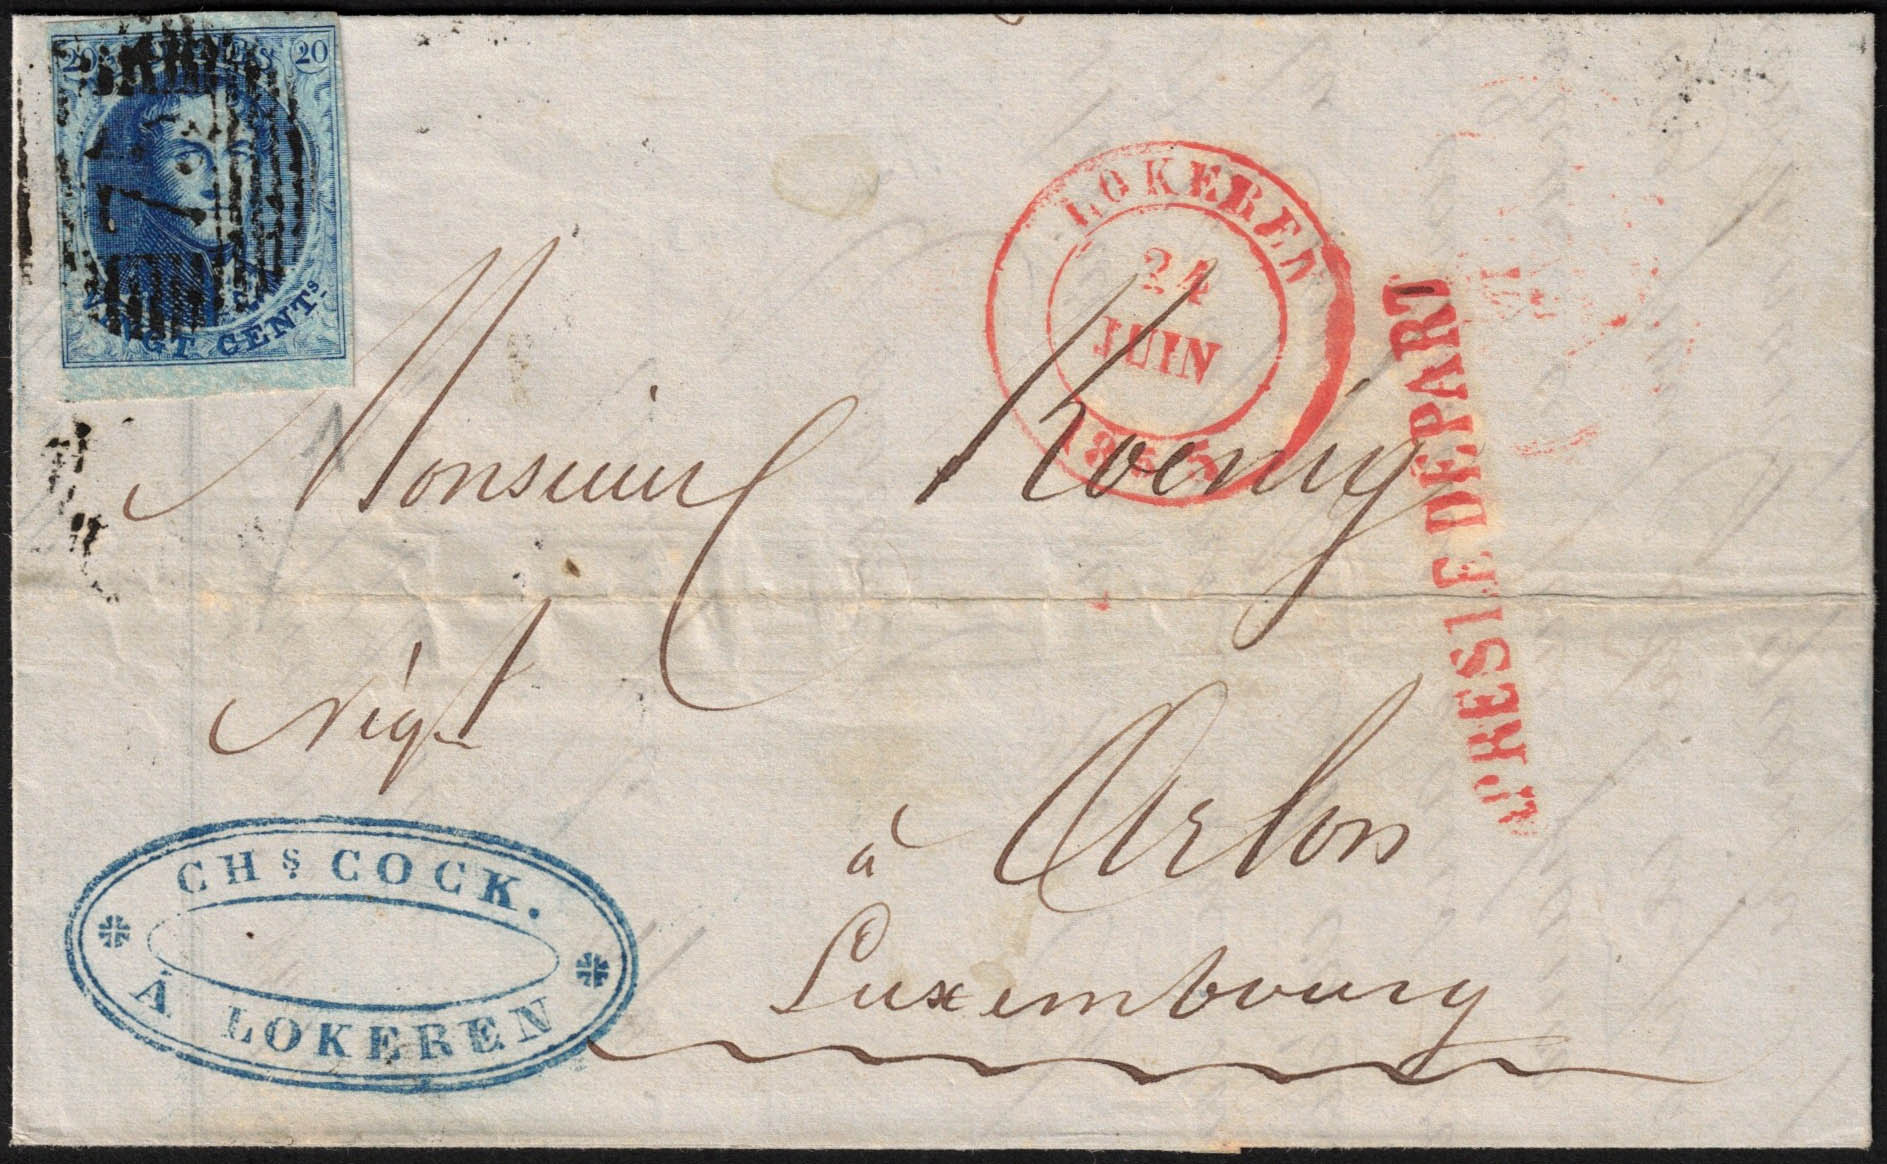 20 POSTES 20
7
VINGT CENTS.
LOKEREN
24
JUIN
1855
APRES LE DEPART
Monsieur Koenig
Négt
à Arlon
Luxembourg
CHS COCK.
À LOKEREN